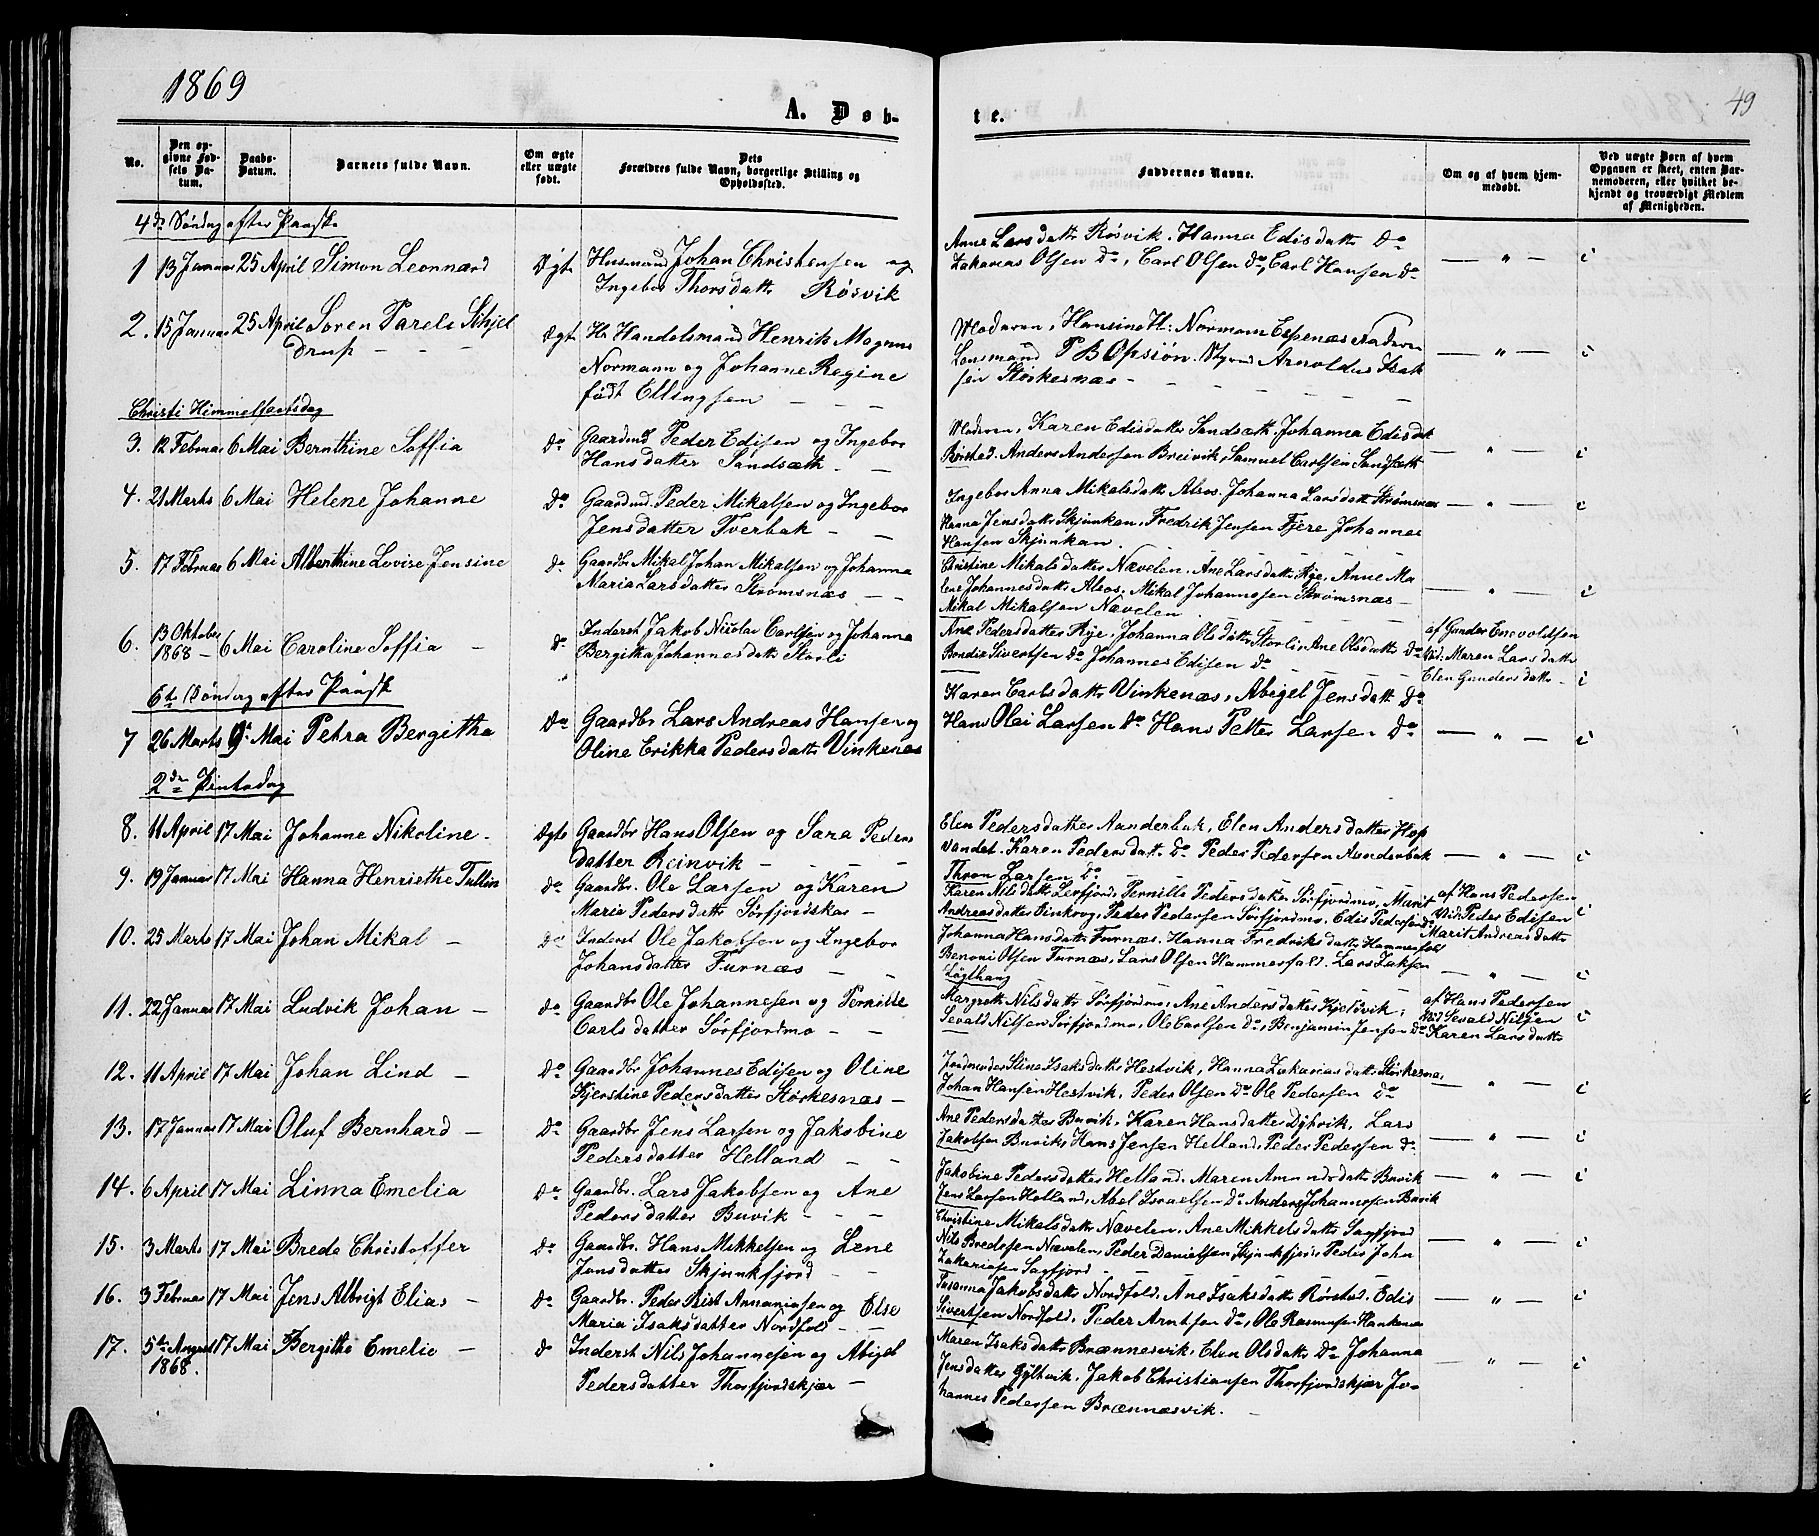 1869
49
A. Døb-
te.
No.
Den opgivne Fødsels Datum.
Daabs-Datum.
Barnets fulde Navn.
Om ægte eller uægte født.
Dets Forældres fulde Navn, borgerlige Stilling og Opholdssted.
Faddernes Navne.
Om og af hvem hjemmedøbt.
Ved uægte Børn af hvem Opgaven er skeet, enten Barnemoderen, eller hvilket bekjendt og troværdigt Medlem af Menigheden.
4de Søndag efter Paaske
1 13 Januar 25 April Simon Leonnard Ægte Husmand Johan Christensen og
Ingebor Thorsdatte Røsvik
Anne Larsdatte Røsvik. Hanna Edisdatte Do
Zakarias Olsen Do, Carl Olsen Do, Carl Hansen Do — " —
2. 15 Januar 25 April Søren Pareli Schjel
drup — — — Ægte Hr Handelsmand Henrik Mogens
Normann og Johanne Regine
født Ellingsen — —
Moderen, Hansine H: Normann Espenæs Faderen
Lensmand P B Opsiøn. Styrmd Arnoldus Isak
sen Størkesnæs — — " —
Christi Himmelfartsdag
3. 12 Februar 6 Mai Bernthine Soffia Do Gaardmd Peder Edisen og Ingebor
Hansdatter Sandsæth. —
Moderen, Karen Edisdatte Sandsæth, Johanna Edisdt
Rørstad. Anders Andersen Breivik, Samuel Carlsen Sandsæth — " —
4. 21 Marts 6 Mai Helene Johanne Do Gaardmd Peder Mikalsen og Ingebor
Jensdatter Tverbak — —
Ingebor Anna Mikalsdatte Alsos. Johanna Larsdatte Strømsnæs
Hanna Jensdatte Skjunkan, Fredrik Jensen Fjere Johannes
Hansen Skjunkan. — " —
5. 17 Februar 6 Mai Alberthine Lovise Jensine Do Gaardbr Mikal Johan Mikalsen og Johanna
Maria Larsdatter Strømsnæs — —
Christine Mikalsdatter Nævelen. Ane Larsdatte Rye, Anne Ma
lene Johannesdatte Alsos, Mikal Johannesen Strømsnæs —
Mikal Mikalsen Nævelen — " —
6. 13 Oktober
1868 — 6 Mai Caroline Soffia — Do Inderst Jakob Nicolai Carlsen og Johanna
Bergitha Johannesdatte Storli
Ane Pedersdatter Rye, Johanna Olsdatte Storli, Ane Olsdatte Do
Bendix Sivertsen Do Johannes Edisen Do
af Gunder Enevoldsen
Vid: Maren Larsdatte
Elen Gundersdatte —
6te Søndag efter Paaske
7 26 Marts 9de Mai Petra Bergitha Do Gaardbr Lars Andreas Hansen og
Oline Erikka Pedersdatte Vinkenæs
Karen Carlsdatte Vinkenæs, Abigel Jensdatt Do
Hans Olai Larsen Do Hans Petter Larsen Do — " —
2den Pintsdag
8. 11 April 17 Mai Johanne Nikoline — Ægte Gaardbr Hans Olsen og Sara Peders
datter Reinvik — — —
Elen Pedersdatter Aanderbak, Elen Andersdatter Hop
vandet. Karen Pedersdatt Do Peder Pedersen Aanderbak
Thron Larsen Do — " —
9. 19 Januar 17 Mai Hanna Henriethe Tullin Do Gaardbr. Ole Larsen og Karen
Maria Pedersdatte Sørfjordskar —
Karen Nilsdatte Lerfjord, Pernille Pedersdatter Sørfjordmo, Marit
Andreasdatter Vinkrog, Peder Pedersen Sørfjordmo, Edis Pedersen Do
af Hans Pedersen
Vid: Peder Edisen
Marit Andreasdatte
10. 25 Marts 17 Mai Johan Mikal — Do Inderst Ole Jakobsen og Ingebor
Johansdatter Furnæs — —
Johanna Hansdatte Furnæs, Hanna Fredriksdatte Hammerfald
Benoni Olsen Furnæs, Lars Olsen Hammerfald. Lars Isaksen
Løgthaug — " —
11. 22 Januar 17 Mai Ludvik Johan — Do Gaardbr Ole Johannesen og Pernille
Carlsdatter Sørfjordmo — —
Margreth Nilsdatte Sørfjordmo, Ane Andersdatter Kjeldvik,
Sevald Nilsen Sørfjordmo, Ole Carlsen Do, Benjamin Jensen Do
af Hans Pedersen
Vid Sevald Nilsen
Karen Larsdatte
12. 11 April 17 Mai Johan Lind — Do Gaardbr Johannes Edisen og Oline
Kjerstine Pedersdatter Størkesnæs —
Jordmoder Stine Isaksdatte Hestvik, Hanna Zakariasdatte Størkesnæs
Johan Hansen Hestvik, Peder Olsen Do Ole Pedersen Do — " —
13. 17 Januar 17 Mai Oluf Bernhard — Do Gaardbr Jens Larsen og Jakobine
Pedersdatter Helland — —
Ane Pedersdatter Buvik, Karen Hansdatter Dybvik, Lars
Jakobsen Buvik, Hans Jensen Helland, Peder Pedersen Do — " —
14. 6 April 17 Mai Linna Emelia Do Gaardbr. Lars Jakobsen og Ane
Pedersdatter Buvik — — —
Jakobine Pedersdatter Helland. Maren Amundsdatt Buvik
Jens Larsen Helland, Abel Israelsen Do Anders Johannesen Buvik — " —
15. 3 Marts 17 Mai Brede Christoffer Do Gaardbr. Hans Mikkelsen og Lene
Jensdatter Skjunkfjord — —
Christine Mikalsdatte Nævelen. Ane Mikkelsdatte Sagfjord
Nils Bredesen Nævelen, Peder Danielsen Skjunkfjord, Peder John
Zakariasen Sagfjord — " —
16. 3 Februar 17 Mai Jens Albrigt Elias — Do Gaardbr. Peder Prist Annaniasen og Else
Maria Isaksdatter Nordfold — —
Susanna Jakobsdatte Nordfold. Ane Isaksdatte Rørstad. Edis
Sivertsen Nordfold, Peder Arntsen Do, Ole Rasmusen Hankenæs — " —
17. 5te August
1868. 17 Mai Bergithe Emelie — Do Inderst Nils Johannesøn og Abigel
Pedersdatter Thorfjordskjær —
Maren Isaksdatte Brænnesvik, Elen Olsdatte Do Johanna
Jensdatter Gyltvik, Jakob Christiansen Thorfjordskjær Jo-
hannes Pedersen Brænnesvik. — " —